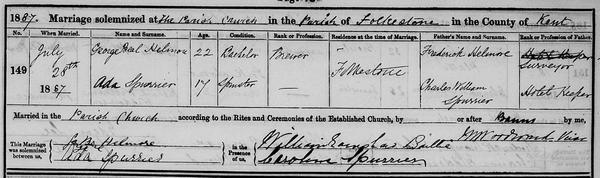 1887. Marriage solemnized at the Parish Church in the Parish of Folkestone in the County of Kent
No. When Married. Name and Surname. Age. Condition. Rank or Profession. Residence at the time of Marriage. Father's Name and Surname. Rank or Profession of Father.
149 July 28th 1887 George Helmore 22 Bachelor Brewer " Frederick Helmore Hotel Keeper Surveyor
Ada Spurrier 17 Spinster — Folkestone Charles William Spurrier Hotel Keeper
Married in the Parish Church according to the Rites and Ceremonies of the Established Church, by or after Banns by me,
This Marriage was solemnized between us, Helmore Ada Spurrier in the Presence of us, William Caroline Spurrier M Woodward Vicar